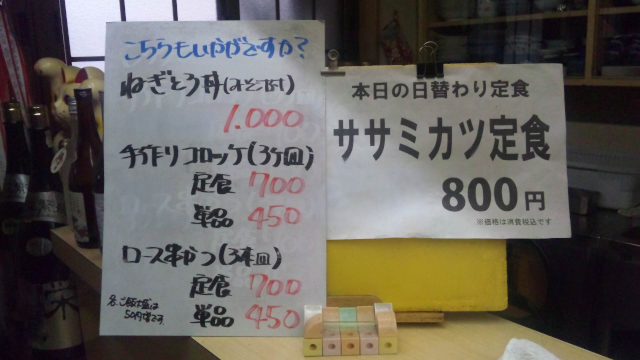 こちらもいかがですか?
ねぎとろ丼(みそ汁付)
1,000
手作りコロッケ(3ヶ皿)
定食 700
単品 450
ロース串かつ(3本皿)
定食 700
単品 450
各、ご飯大盛は
50円増です
本日の日替わり定食
ササミカツ定食
800円
※価格は消費税込です